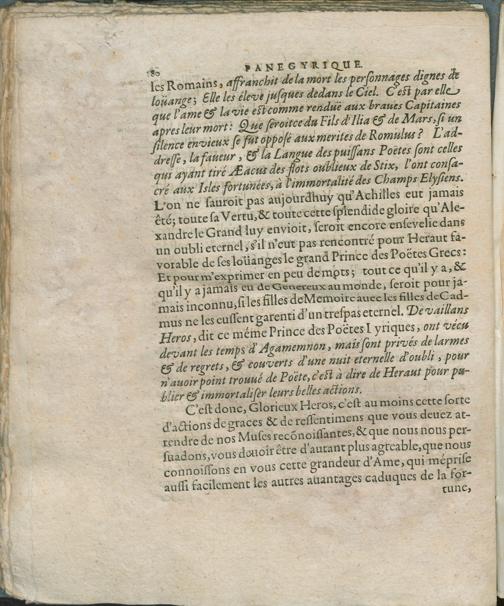 180 PANEGYRIQUE
les Romains, affranchit de la mort les personnages dignes de
loüange; Elle les éleve jusques dedans le Ciel. C'est par elle
que l'ame & la vie est comme renduë aux braues Capitaines
apres leur mort: Que seroit ce du Fils d'Ilia & de Mars, si un
silence envieux se fut opposé aux merites de Romulus? L'ad-
dresse, la faueur, & la Langue des puissans Poëtes sont celles
qui ayant tiré Æacus des flots oublieux de Stix, l'ont consa-
cré aux Isles fortunées, à l'immortalité des Champs Elysiens.
L'on ne sauroit pas aujourdhuy qu'Achilles eut jamais
êté; toute sa Vertu, & toute cette splendide gloire qu'Ale-
xandre le Grand luy envioit, seroit encore ensevelie dans
un oubli eternel, s'il n'eut pas rencontré pour Heraut fa-
vorable de ses loüanges le grand Prince des Poëtes Grecs:
Et pour m'exprimer en peu de mots; tout ce qu'il y a, &
qu'il y a jamais eu de Genereux au monde, seroit pour ja-
mais inconnu, si les filles de Memoire auec les filles de Cad-
mus ne les eussent garenti d'un trespas eternel. De vaillans
Heros, dit ce méme Prince des Poëtes Lyriques, ont vécu
devant les temps d'Agamemnon, mais sont privés de larmes
& de regrets, & couverts d'une nuit eternelle d'oubli, pour
n'auoir point trouué de Poëte, c'est à dire de Heraut pour pu-
blier & immortaliser leurs belles actions.
C'est donc, Glorieux Heros, c'est au moins cette sorte
d'actions de graces & de ressentimens que vous deuez at-
tendre de nos Muses reconoissantes, & que nous nous per-
suadons, vous douoir être d'autant plus agreable, que nous
connoissons en vous cette grandeur d'Ame, qui méprise
aussi facilement les autres auantages caduques de la for-
tune,